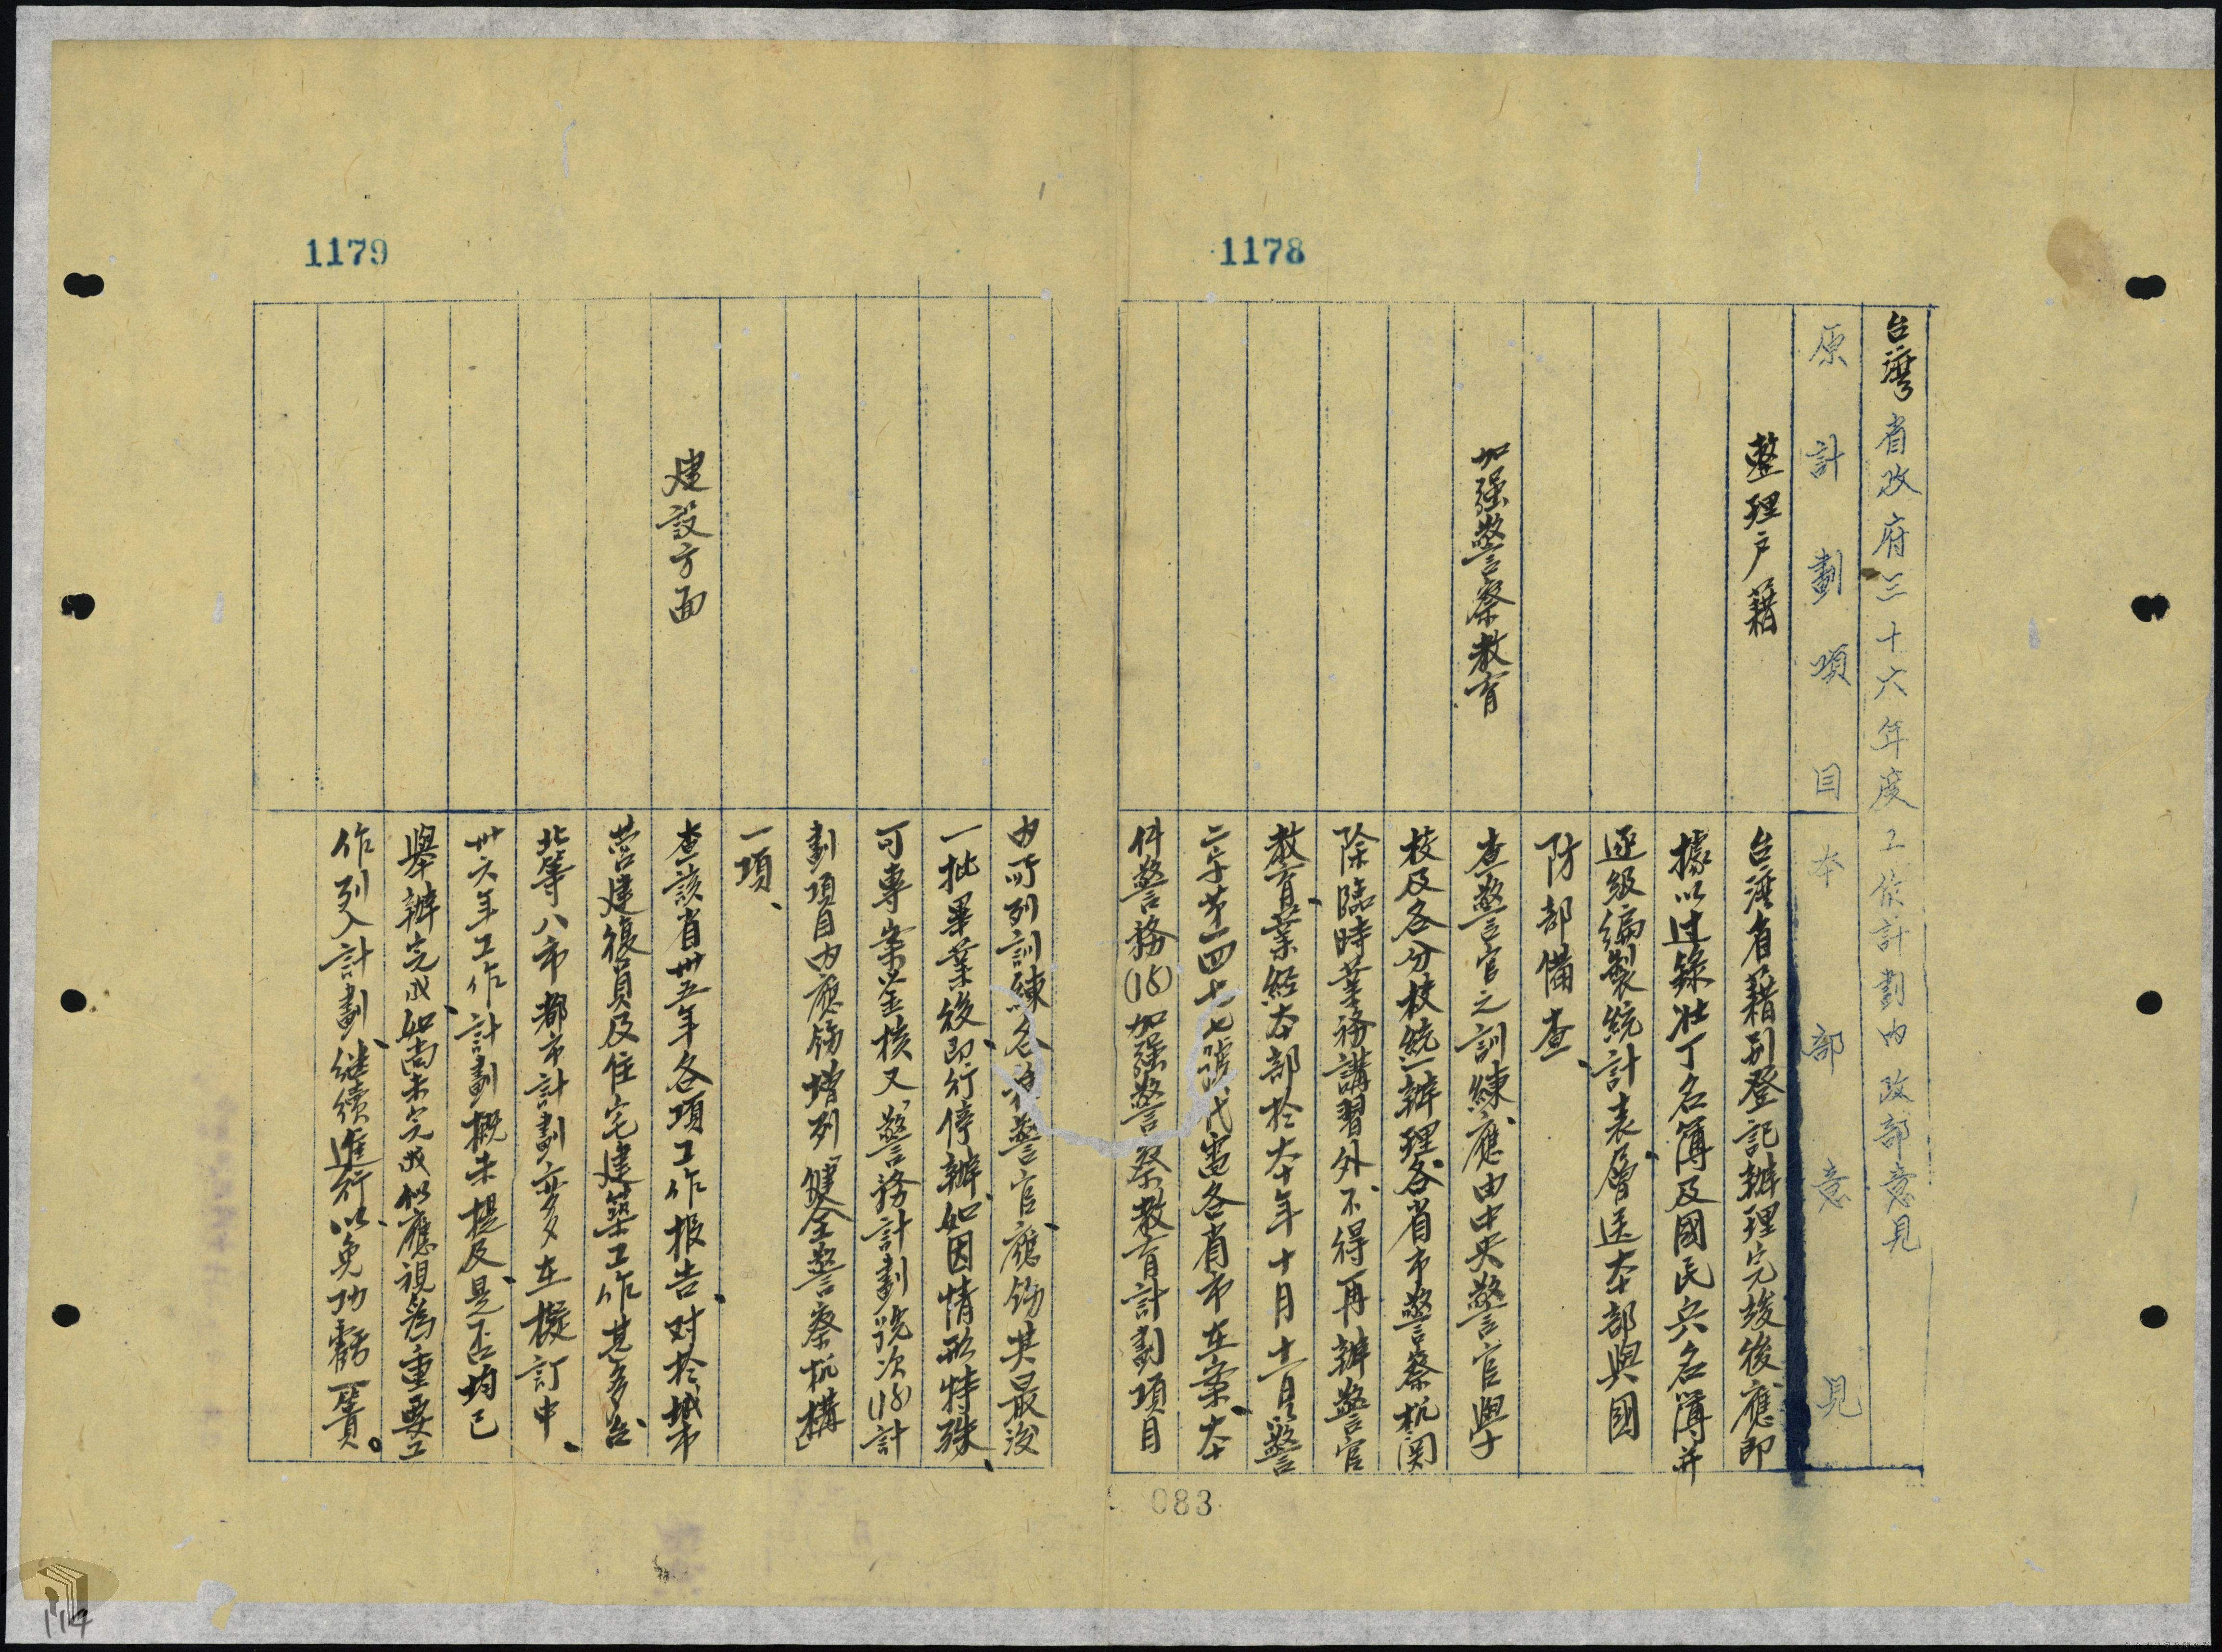 1178
台灣省政府三十六年度工作計劃內政部意見
原計劃項目
本部意見
整理户籍
台灣省籍別登記辦理完竣後、應即
據以过錄壯丁名簿及國民兵名簿并
逐級編製統計表、層送本部與國
防部備查、
加强警察教育
查警官之訓練、應由中央警官學
校及各分校統一辦理、各省市警察机関
除臨時業務講習外、不得再辦警官
教育、業經本部於本年十月十一日警
二字第一四七七號代電各省市在案、本
件警務(15)加强警察教育計劃項目
083
1179
內所列訓練各種警官、應飭其最後
一批畢業後、即行停辦、如因情形特殊、
可專案呈核又「警務計劃」說次(18)計
劃項目內應飭增列「健全警察机構」
一項、
建設方面
查該省卅五年各項工作报告、对於城市
营建復員及住宅建築工作甚多、台
北等八市都市計劃亦多在擬訂中、
卅六年工作計劃概未提及、是否均已
舉辦完成、如尚未完成似應視為重要工
作列入計劃、继續進行、以免功虧一簣。
114